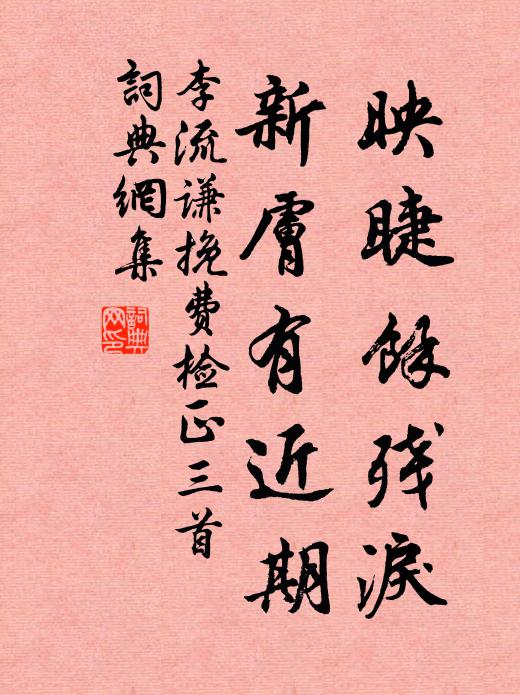 映睫馀残淚
新膚有近期
李流谦挽费检正三首
詞典網集
詞典網印